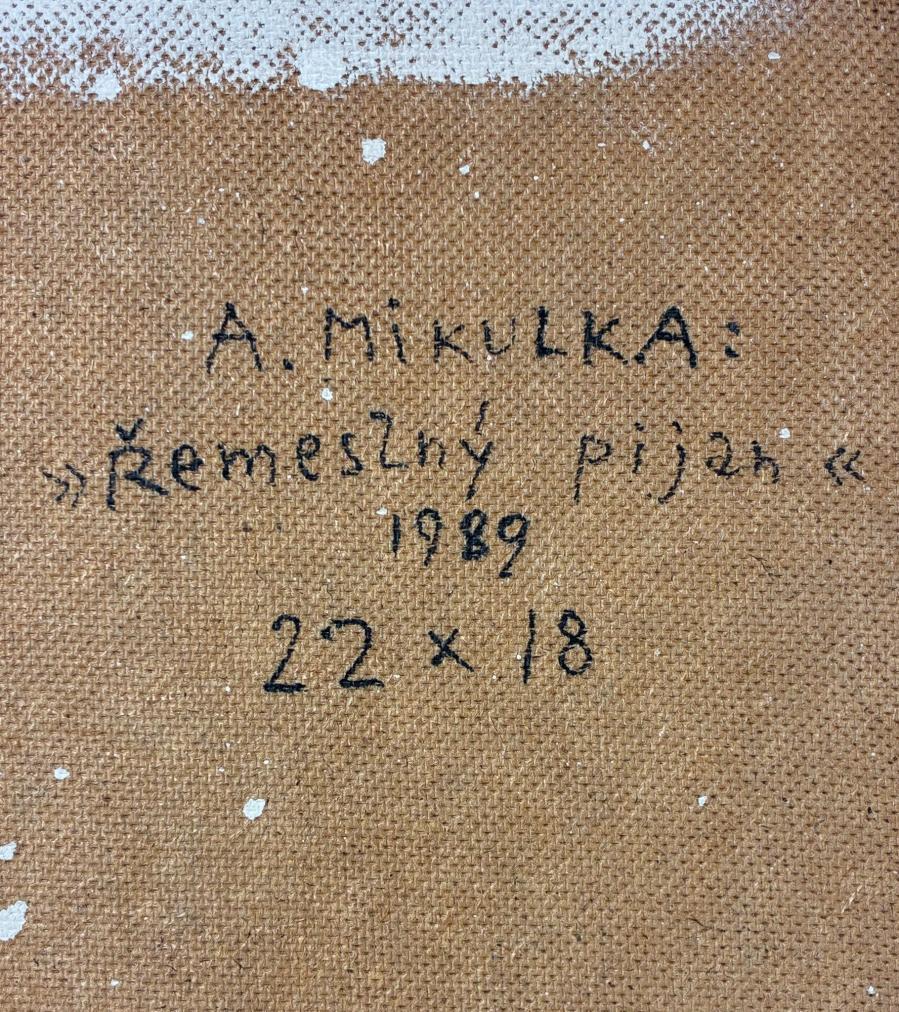 A. MIKULKA:
»Řemeslný pijan«
1989
22 x 18